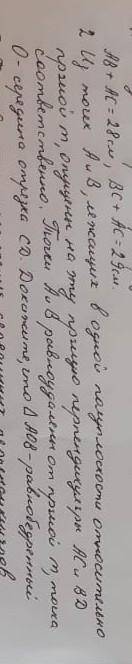 AB + AC = 28см, BC + AC = 29см.
2 Из точек А и В, лежащих в одной полуплоскости относительно
прямой m, опущены на эту прямую перпендикуляры AC и BD
соответственно. Точки А и В равноудалены от прямой m, точка
О - середина отрезка CD. Докажите, что Δ AOB - равнобедренный